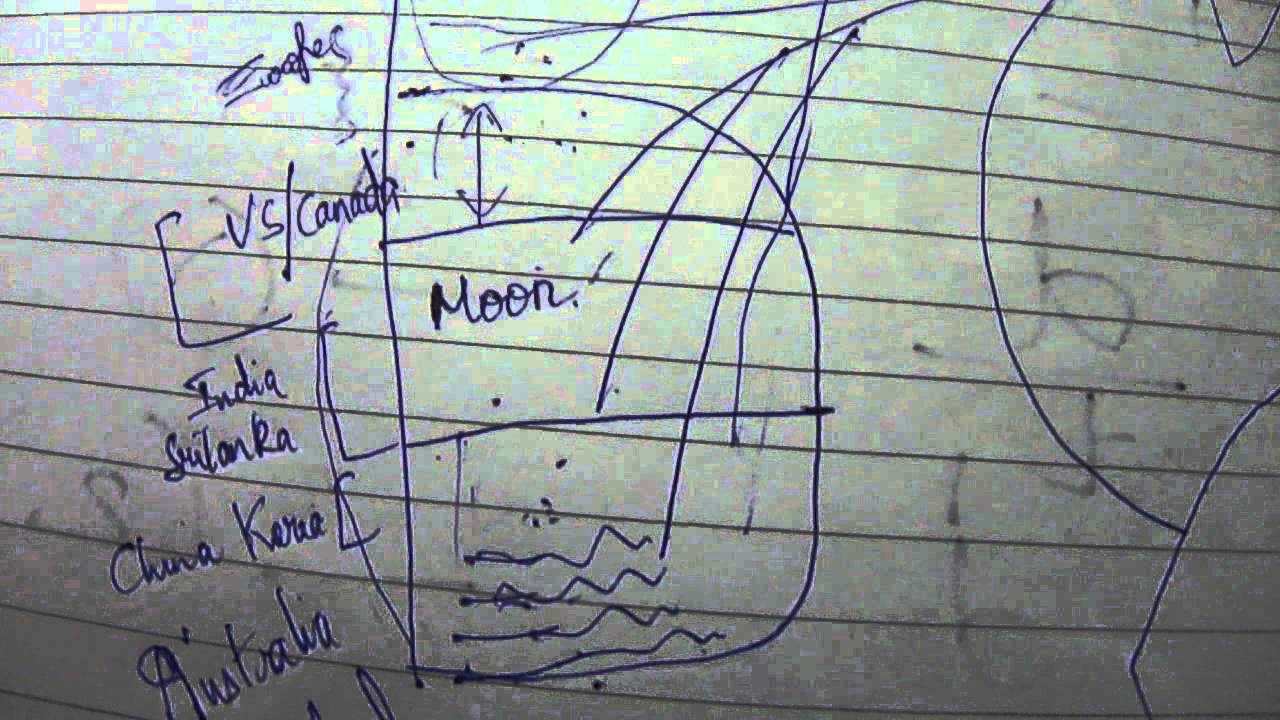 US/Canada
Moon.
India
Srilanka
China Koria
Australia